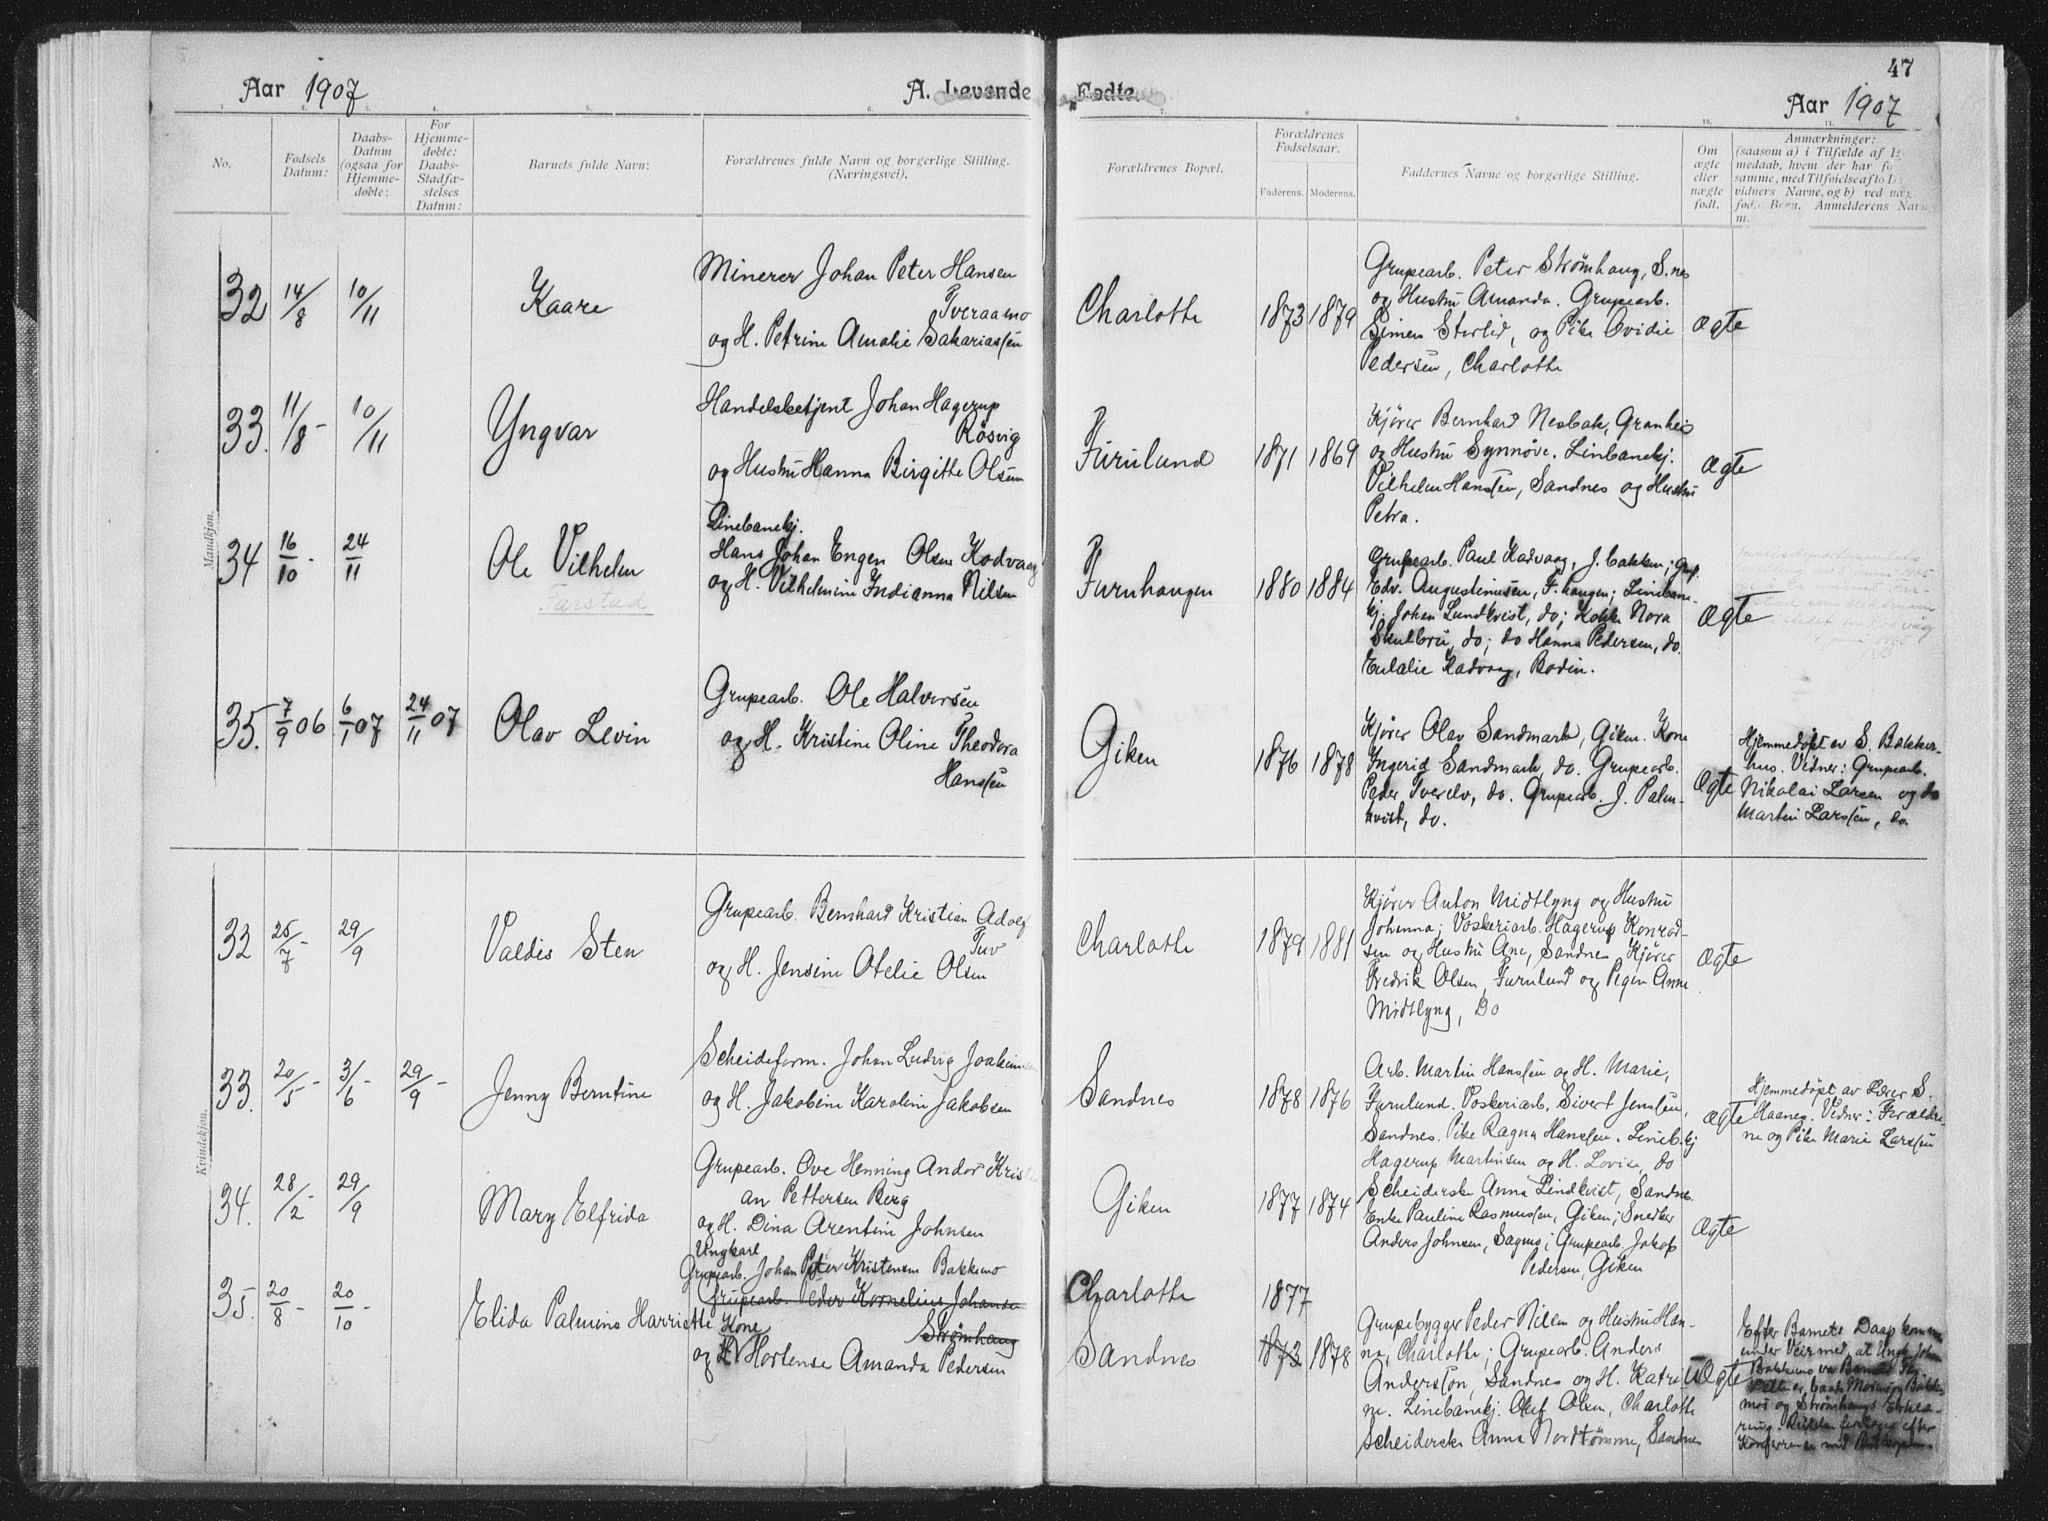 47
Aar 1907
A. Levende Fødte.
Aar 1907
1. 2. 3. 4. 5. 6. 7. 8. 9. 10. 11.
No.
Fødsels Datum:
Daabs-Datum (ogsaa for Hjemme-døbte:
For Hjemme-døbte: Daabs-Stadfæ-stelses Datum:
Barnets fulde Navn:
Forældrenes fulde Navn og borgerlige Stilling.
(Næringsvei).
Forældrenes Bopæl.
Forældrenes Fødselsaar.
Faderens. Moderens.
Faddernes Navne og borgerlige Stilling.
Om ægte eller nægte født.
Anmærkninger:
(saasom a) i Tilfælde af
medaab, hvem der har
samme, med Tilføielse af to
vidners Navne, og b) ved
Børn. Anmelderens Navn
Mandkjøn.
32 14/8 10/11 Kaare
Minerer Johan Peter Hansen
Tveraamo
og H. Petrine Amalie Sakariassen
Charlotte 1873 1879
Grupearb. Peter Strømhaug, S.nes
og Hustru Amanda. Grupearb.
Simen Sterlid, og Pike Ovidie
Pedersen, Charlotte
Ægte
33. 11/8 - 10/11 Yngvar
Handelsbetjent Johan Hagerup
Røsvig
og Hustru Hanna Birgitte Olsen
Furulund 1871 1869
Kjører Bernhard Nesbak, Granheis
og Hustru Synnøve. Linbanekj.
Vilhelm Hanssen, Sandnes og Hustru
Petra.
Ægte
34 16/10 - 24/11 Ole Vilhelm
Farstad
Linebanekj.
Hans Johan Engen Olsen Kodvaag
og H. Vilhelmine Indianna Nilsen
Furuhaugen 1880 1884
Grupearb. Paul Kadvaag, J. bakken; Grp.
Edv. Augustinusen, F. haugen; Linibane-
kj. Johan Lundkvist, do; Kokke Nora
Skulbru, do; do Hanna Pedersen, do.
Eulalie Kadvaag, Bodin.
Ægte
35. 7/9 06 6/1 07 24/11 07 Olav Levin
Grupearb. Ole Halversen
og H. Kristine Oline Theodora
Hanssen
Giken 1876 1878
Kjører Olav Sandmark, Giken. Kone
Ingerid Sandmark, do. Grupearb.
Peder Tverelv, do. Grupearb. J. Palm-
kvist, do.
Ægte
Hjemmedøpt av S. Bakker-
hus. Vidner: Grupearb.
Nikolai Larsen og do
Martin Larssen, do.
Kvindekjøn.
32 25/7 - 29/9 Valdis Sten
Grupearb. Bernhard Kristian Adolf
Tuv
og H. Jensine Otelie Olsen
Charlotte 1879 1881
Kjører Anton Midtlyng og Hustru
Johanna; Vaskeriarb. Hagerup Konrad-
sen og Hustru Ane, Sandnes Kjører
Fredrik Olsen, Furulund og Pigen Anne
Midtlyng, Do
Ægte
33. 20/5 - 3/6 - 29/9 - Jenny Berntine
Scheideform. Johan Ludvig
og H. Jakobine Karoline Jakobsen
Sandnes 1878 1876
Arb. Martin Hanssen og H. Marie,
Furulund. Vaskeriarb. Sivert Jenssen,
Sandnes. Pike Ragna Hanssen. Lineb.kj
Hagerup Martinsen og H. Lovise, do
Ægte
Hjemmedøpt av Lærer S.
Haanes. Vidner: Forældre-
ne og Pike Marie Larssen
34. 28/2 - 29/9 Mary Elfrida
Grupearb. Ove Henning Andor Kristi
an Pettersen Berg
og H. Dina Arentine Johnsen
Giken 1877 1874
Scheiderske Anna Lindkvist, Sandnes.
Enke Pauline Rasmussen, Giken; Snedker
Anders Johnsen, Sagmo; Grupearb. Jakob
Pedersen, Giken
Ægte
35. 20/8 - 20/10 - Elida Palmine Harriette
Ungkarl
Grupearb. Johan Peter Kristensen Bakkemo
Grupearb. Peder Kornelius Johansen
Strømhaug
Kone
og H. Hortense Amanda Pedersen
Charlotte 1877
Sandnes 1873 1878
Grupebygger Peder Nilsen og Hustru Han-
na, Charlotte; Grupearb. Anders
Andersson, Sandnes og H. Katri-
ne. Linebanekj. Olef Olsen, Charlotte
Scheiderske Anna Nordtømme, Sandnes
U Ægte
Efter Barnets Daap kom
under Veir med, at Ungk. Johan
Bakkemo va Barnets Far